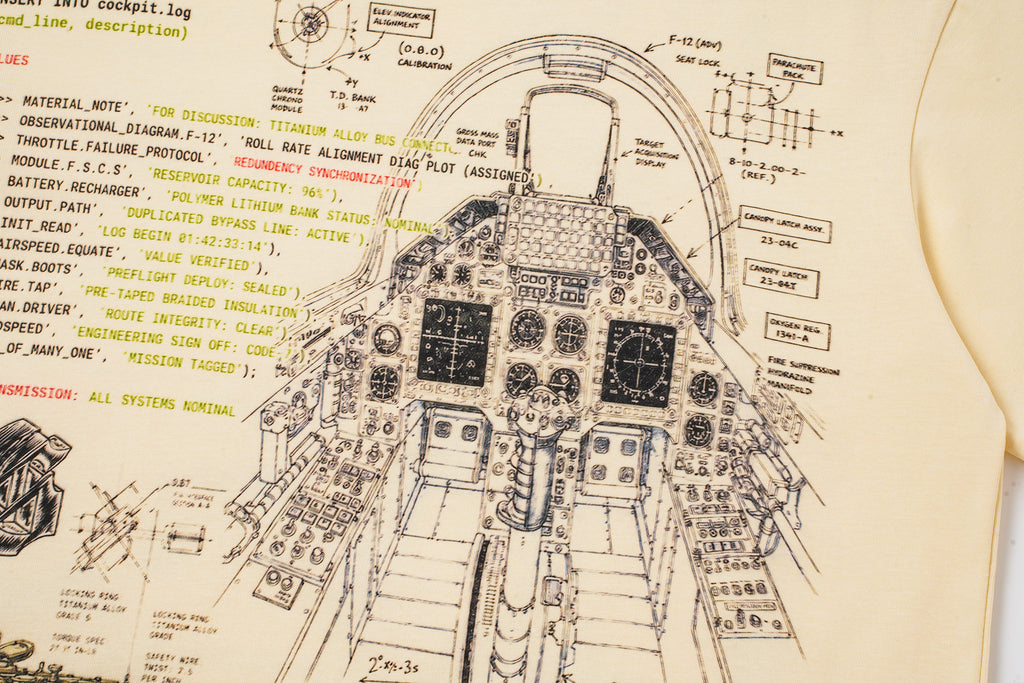 NSERT INTO cockpit.log
cmd_line, description)
LUES
>> MATERIAL_NOTE', 'FOR DISCUSSION: TITANIUM ALLOY BUS CONNECT
> OBSERVATIONAL_DIAGRAM.F-12', 'ROLL RATE ALIGNMENT DIAG PLOT (ASSIGNED')
> THROTTLE.FAILURE_PROTOCOL', REDUNDENCY SYNCHRONIZATION')
MODULE.F.S.C.S', 'RESERVOIR CAPACITY: 96%'),
BATTERY.RECHARGER', 'POLYMER LITHIUM BANK STATUS: NOMINAL'
OUTPUT.PATH', 'DUPLICATED BYPASS LINE: ACTIVE'),
INIT_READ', 'LOG BEGIN 01:42:33:14'),
AIRSPEED.EQUATE', 'VALUE VERIFIED'),
ASK.BOOTS', 'PREFLIGHT DEPLOY: SEALED'),
IRE.TAP', 'PRE-TAPED BRAIDED INSULATION'
AN.DRIVER', 'ROUTE INTEGRITY: CLEAR')
DSPEED', 'ENGINEERING SIGN OFF: CODE
_OF_MANY_ONE', 'MISSION TAGGED');
NSMISSION: ALL SYSTEMS NOMINAL
ELEV. INDICATOR
ALIGNMENT
(0.0.0)
CALIBRATION
+X
+Y
QUARTZ
CHRONO
MODULE
T.D. BANK
13- A7
F-12 (ADV)
SEAT LOCK
PARACHUTE
PACK
+X
8-10-2.00-2-
(REF.)
GROSS MASS
DATA PORT
CHK
TARGET
ACQUISITION
DISPLAY
CANOPY LATCH ASSY.
23-04C
CANOPY LATCH
23-04T
OXYGEN REG.
1341-A
FIRE SUPPRESSION
HYDRAZINE
MANIFOLD
LOCKING RING
TITANIUM ALLOY
GRADE 5
TORQUE SPEC
LOCKING RING
TITANIUM ALLOY
GRADE
SAFETY WIRE
TWIST: 7.5
PER INCH